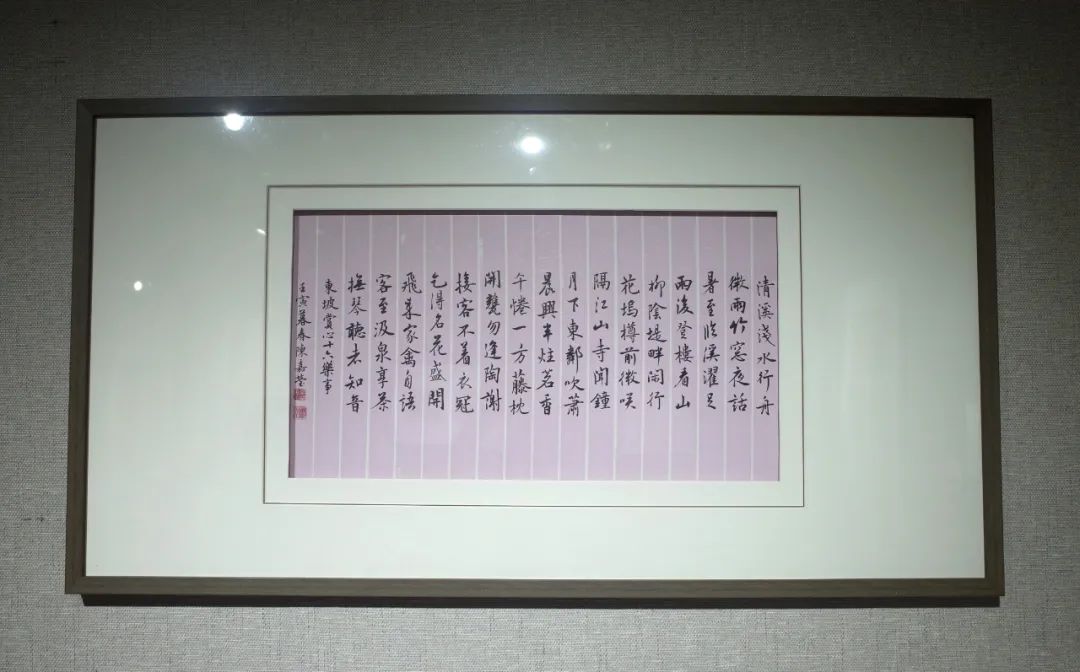 清溪淺水行舟
微雨竹窓夜話
暑至臨溪濯足
雨後登樓看山
柳陰堤畔閑行
花塢樽前微咲
隔江山寺聞鐘
月下東鄰吹簫
晨興半炷茗香
午惓一方藤枕
開甕勿逢陶謝
接客不着衣冠
乞得名花盛開
飛來家禽自語
客至汲泉享茶
撫琴聽者知音
東坡賞心十六樂事
壬寅暮春陳嘉瑩